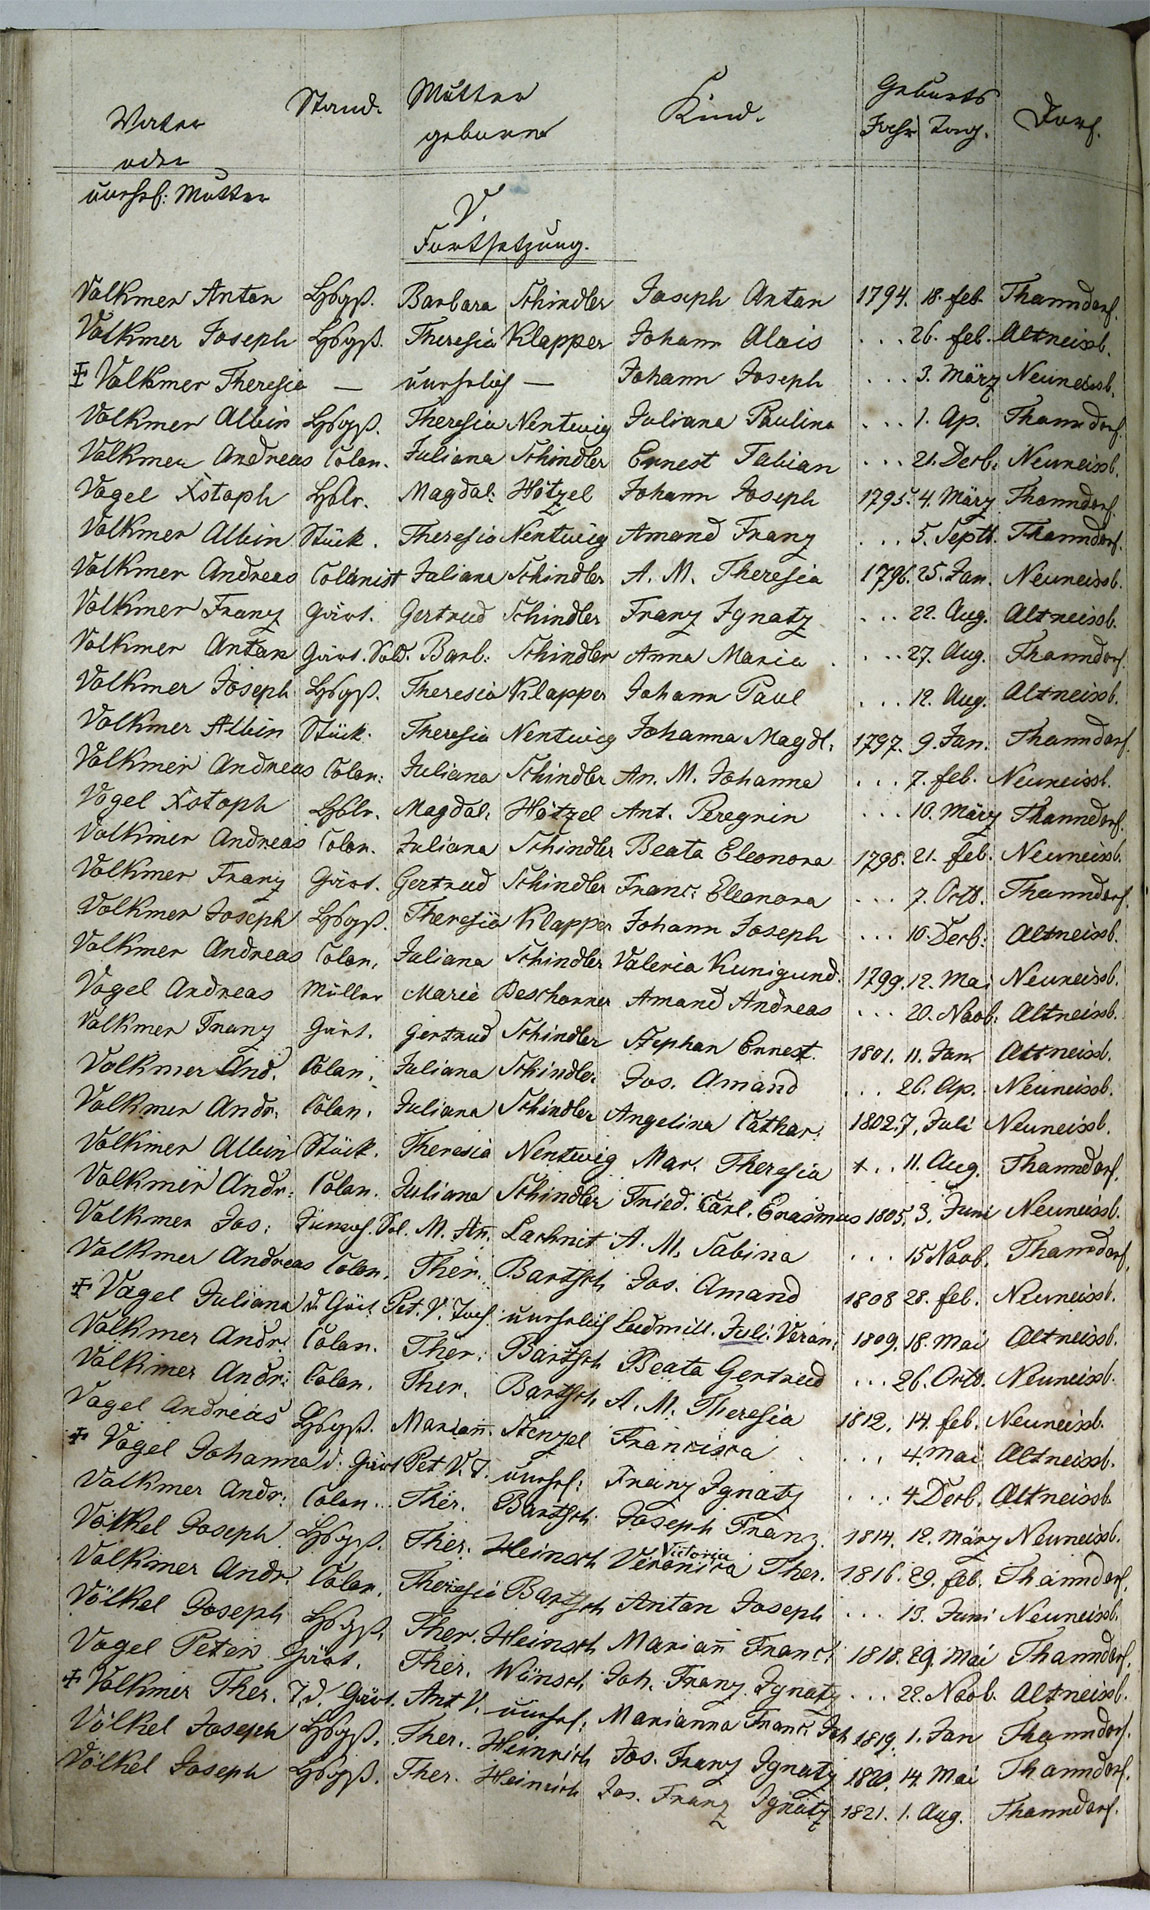 Vater oder unehel: Mutter Stand. Mutter geborne Kind. Geburts Jahr Tag. Dorf.
V.
Fortsetzung.
Volkmer Anton Barbara Schindler Joseph Anton 1794. 18. feb. Thanndorf.
Volkmer Joseph Theresia Klapper Johann Alois ... 26. feb. Altneissb.
Volkmer Theresia — unehelich — Johann Joseph ... 3. März Neuneissb.
Volkmer Albin Theresia Nentwig Juliana Paulina ... 1. Ap. Thanndorf.
Volkmer Andreas Colon. Juliana Schindler Ernest Fabian ... 21. Decb. Neuneissb.
Vogel Xstoph Magdal: Hötzel Johann Joseph 1795. 4. März Thanndorf.
Volkmer Albin Stück. Theresia Nentwig Amand Franz ... 5. Septb. Thanndorf.
Volkmer Andreas Colonist Juliana Schindler A. M. Theresia 1796. 25. Jan. Neuneissb.
Volkmer Franz Gärt. Gertrud Schindler Franz Ignatz ... 22. Aug. Altneissb.
Volkmer Anton Gärt. Sold. Barb: Schindler Anna Maria ... 27. Aug. Thanndorf.
Volkmer Joseph Theresia Klapper Johann Paul ... 12. Aug. Altneissb.
Volkmer Albin Stück. Theresia Nentwig Johanna Magdl. 1797. 9. Jan. Thanndorf.
Volkmer Andreas Colon: Juliana Schindler An. M. Johanna ... 7. feb. Neuneissb.
Vogel Xstoph Magdal. Hötzel Ant. Peregrin ... 10. März Thanndorf.
Volkmer Andreas Colon. Juliana Schindler Beata Eleonora 1798. 21. feb. Neuneissb.
Volkmer Franz Gärt. Gertrud Schindler Franc. Eleonora ... 7. Octb. Thanndorf.
Volkmer Joseph Theresia Klapper Johann Joseph ... 10. Decb: Altneissb.
Volkmer Andreas Colon. Juliana Schindler Valeria Kunigund. 1799. 12. Mai Neuneissb.
Vogel Andreas Müller Marie Peschanner Amand Andreas ... 20. Novb. Altneissb.
Volkmer Franz Gärt. Gertrud Schindler Stephan Ernest. 1801. 11. Jan. Altneissb.
Volkmer And. Colon. Juliana Schindler Jos. Amand ... 26. Ap. Neuneissb.
Volkmer Andr. Colon. Juliana Schindler Angelina Cathar. 1802. 7. Juli Neuneissb.
Volkmer Albin Stück. Theresia Nentwig Mar. Theresia ... 11. Aug. Thanndorf.
Volkmer Andr: Colon. Juliana Schindler Fried. Carl. Erasmus 1805. 3. Juni Neuneissb.
Volkmer Jos: M. An. Lachnit A. M. Sabina ... 15 Novb. Thanndorf.
Volkmer Andreas Colon. Ther: Bartsch Jos. Amand 1808 28. feb. Neuneissb.
Vogel Juliana d. Gärt. Pet. V. Toch. unehelich Ludmill. Juli. Veron: 1809. 18. Mai Altneissb.
Volkmer Andr. Colon. Ther: Bartsch Beata Gertrud ... 26. Octb. Neuneissb.
Volkmer Andr: Colon. Ther. Bartsch A. M. Theresia 1812. 14. feb. Neuneissb.
Vogel Andreas Mariañ. Stenzel Francisca ... 4. Mai Altneissb.
Vogel Johanna d. Gärt Pet V. T. unehel: Franz Ignatz ... 4 Decb. Altneissb
Volkmer Andr: Colon. Ther. Bartsch Joseph Franz. 1814. 12. März Neuneissb.
Völkel Joseph Ther. Heinsch Veronica Victoria Ther. 1816. 29. feb. Thanndorf.
Volkmer Andr. Colon. Theresia Bartsch Anton Joseph ... 13. Juni Neuneissb.
Völkel Joseph Ther. Heinsch Mariañ Franc. 1818. 29. Mai Thanndorf.
Vogel Peter Gärt. Ther. Wünsch Joh. Franz Ignatz ... 22. Novb. Altneissb.
Volkmer Ther. T. d. Gärt. Ant V. unehel: Marianna Franc. Joh 1819. 1. Jan Thanndorf.
Völkel Joseph Ther. Heinrich Jos. Franz Ignatz 1820. 14. Mai Thanndorf.
Völkel Joseph Ther. Heinrich Jos. Franz Ignatz 1821. 1. Aug. Thanndorf.